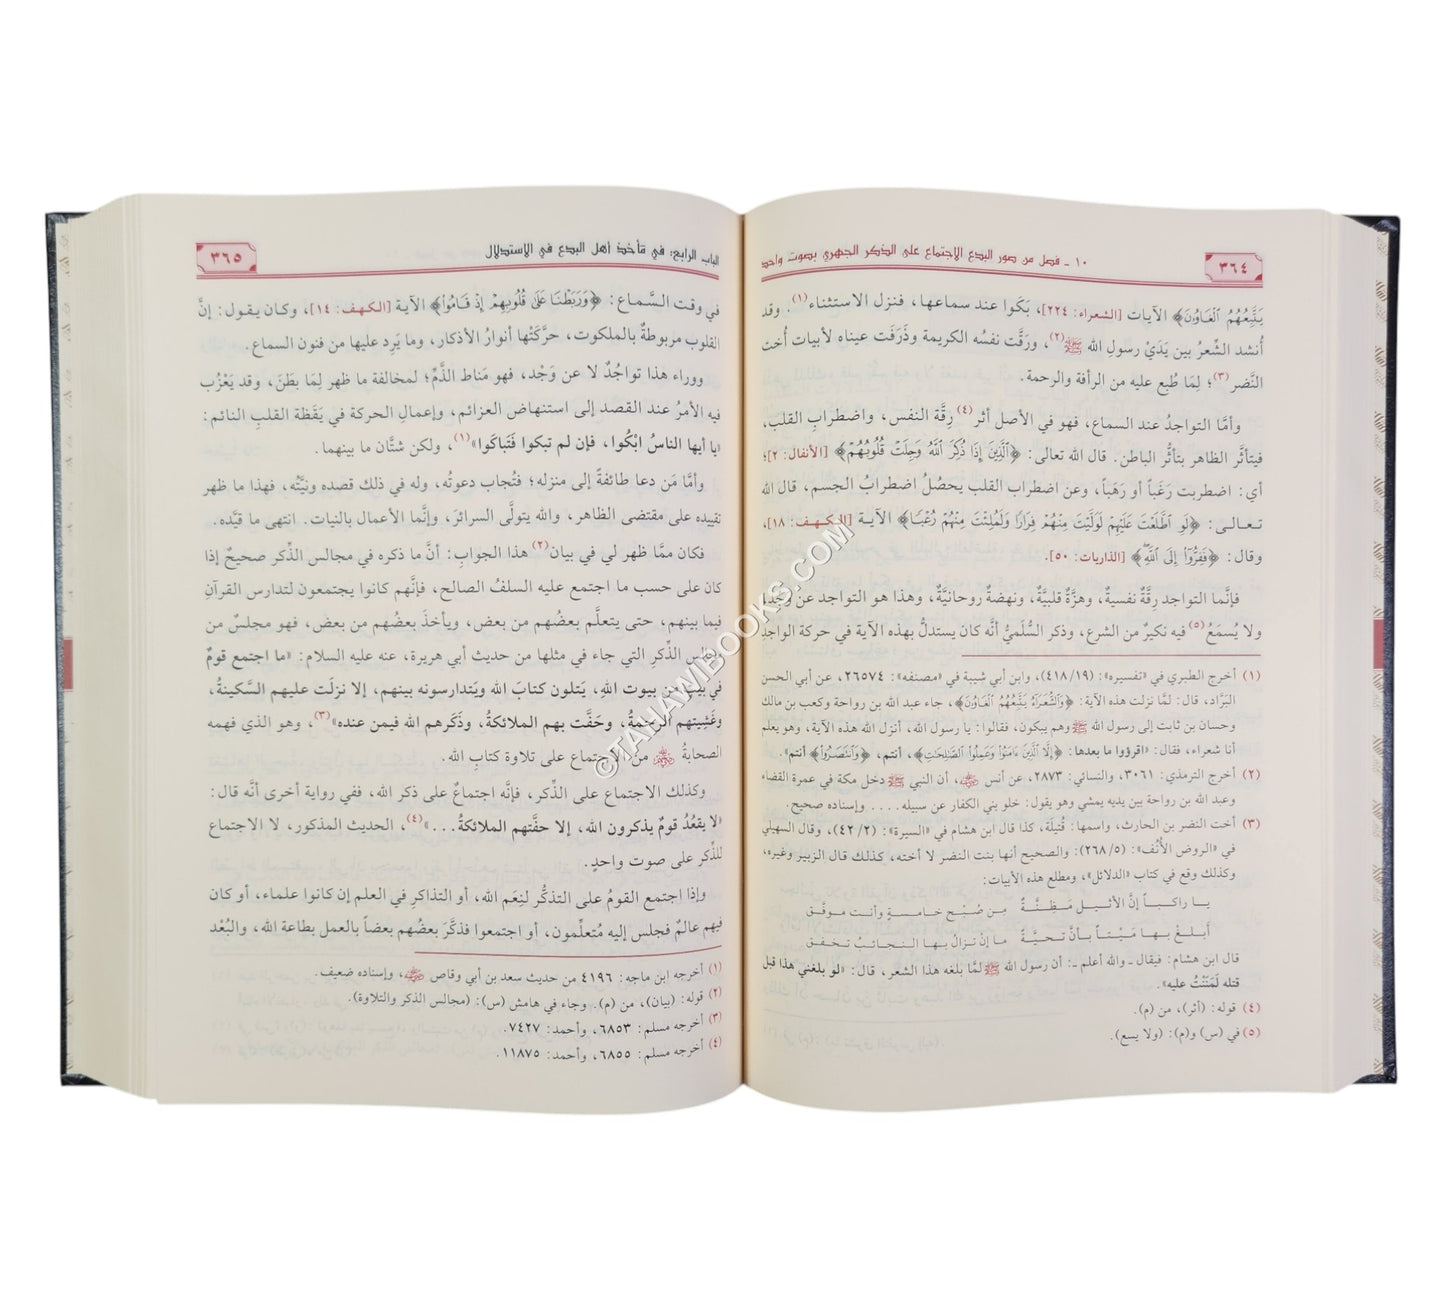 ٣٦٤
١٠ - فصل من صور البدع الاجتماع على الذكر الجهري بصوت واحد
يَتَّبِعُهُمُ ٱلْغَاوُۥنَ﴾ الآيات [الشعراء: ٢٢٤]، بَكَوا عند سماعها، فنزل الاستثناء(١). وقد
أُنشد الشِّعرُ بين يَدَيْ رسول الله ﷺ(٢)، ورَقَّت نفسُه الكريمة وذَرَفَت عيناه لأبيات أُخت
النَّضر(٣)؛ لِمَا طُبع عليه من الرأفة والرحمة.
وأمَّا التواجدُ عند السماع، فهو في الأصل أثر(٤) رِقَّة النفس، واضطرابِ القلب،
فيتأثَّر الظاهر بتأثُّر الباطن. قال الله تعالى: ﴿ٱلَّذِينَ إِذَا ذُكِرَ ٱللَّهُ وَجِلَتْ قُلُوبُهُمْ﴾ [الأنفال: ٢]؛
أي: اضطربت رَغَباً أو رَهَباً، وعن اضطراب القلب يحصُلُ اضطرابُ الجسم، قال الله
تعالى: ﴿لَوِ ٱطَّلَعْتَ عَلَيْهِمْ لَوَلَّيْتَ مِنْهُمْ فِرَارًا وَلَمُلِئْتَ مِنْهُمْ رُعْبًا﴾ الآية [الكهف: ١٨]،
وقال: ﴿فَفِرُّوٓا۟ إِلَى ٱللَّهِ﴾ [الذاريات: ٥٠].
فإنَّما التواجد رِقَّةٌ نفسيةٌ، وهزَّةٌ قلبيَّةٌ، ونهضةٌ روحانيَّةٌ، وهذا هو التواجد عنْ وَجْد،
ولا يُسمَعُ(٥) فيه نكيرٌ من الشرع، وذكر السُّلَميُّ أنَّه كان يستدلُّ بهذه الآية في حركة الواجد
(١) أخرج الطبري في «تفسيره»: (١٩/٤١٨)، وابن أبي شيبة في «مصنفه»: ٢٦٥٧٤، عن أبي الحسن
البرَّاد، قال: لمَّا نزلت هذه الآية: ﴿وَٱلشُّعَرَآءُ يَتَّبِعُهُمُ ٱلْغَاوُۥنَ﴾، جاء عبد الله بن رواحة وكعب بن مالك
وحسان بن ثابت إلى رسول الله ﷺ وهم يبكون، فقالوا: يا رسول الله، أنزل الله هذه الآية، وهو يعلم
أنا شعراء، فقال: «اقرؤوا ما بعدها: ﴿إِلَّا ٱلَّذِينَ ءَامَنُوا۟ وَعَمِلُوا۟ ٱلصَّٰلِحَٰتِ﴾، أنتم، ﴿وَٱنتَصَرُوا۟﴾ أنتم».
(٢) أخرج الترمذي: ٣٠٦١، والنسائي: ٢٨٧٣، عن أنس رضي الله عنه، أن النبي ﷺ دخل مكة في عمرة القضاء
وعبد الله بن رواحة بين يديه يمشي وهو يقول: خلو بني الكفار عن سبيله .... وإسناده صحيح.
(٣) أخت النضر بن الحارث، واسمها: قُتيلَة، كذا قال ابن هشام في «السيرة»: (٢/٤٢)، وقال السهيلي
في «الروض الأُنُف»: (٥/٢٦٨): والصحيح أنها بنت النضر لا أخته، كذلك قال الزبير وغيره،
وكذلك وقع في كتاب «الدلائل»، ومطلع هذه الأبيات:
يا راكباً إنَّ الأثيل مَظِنَّةٌ من صُبْح خامسةٍ وأنت موفَّق
أَبلِغْ بها مَيْتاً بأنَّ تحيَّةً ما إنْ تزالُ بها النجائبُ تخفق
قال ابن هشام: فيقال ـ والله أعلم ـ: أن رسول الله ﷺ لمَّا بلغه هذا الشعر، قال: «لو بلغني هذا قبل
قتله لَمَنَنْتُ عليه».
(٤) قوله: (أثر)، من (م).
(٥) في (س) و(م): (ولا يسع).
الباب الرابع: في مأخذ أهل البدع في الاستدلال
٣٦٥
في وقت السَّماع: ﴿وَرَبَطْنَا عَلَىٰ قُلُوبِهِمْ إِذْ قَامُوا۟﴾ الآية [الكهف: ١٤]، وكان يقول: إنَّ
القلوب مربوطةٌ بالملكوت، حرَّكَتْها أنوارُ الأذكار، وما يَرِد عليها من فنون السماع.
ووراء هذا تواجُدٌ لا عن وَجْد، فهو مَناط الذَّمِّ؛ لمخالفة ما ظهر لِمَا بطَنَ، وقد يَعْزُب
فيه الأمرُ عند القصد إلى استنهاض العزائم، وإعمالِ الحركة في يَقَظة القلبِ النائم:
«يا أيها الناسُ ابْكُوا، فإن لم تبكوا فَتَباكَوا»(١)، ولكن شتَّان ما بينهما.
وأمَّا مَن دعا طائفةً إلى منزله؛ فتُجاب دعوتُه، وله في ذلك قصده ونيَّتُه، فهذا ما ظهر
تقييده على مقتضى الظاهر، والله يتولَّى السرائرَ، وإنَّما الأعمال بالنيات. انتهى ما قيَّده.
فكان ممَّا ظهر لي في بيان(٢) هذا الجوابِ: أنَّ ما ذكره في مجالس الذِّكر صحيحٌ إذا
كان على حسب ما اجتمع عليه السلفُ الصالح، فإنَّهم كانوا يجتمعون لتدارس القرآنِ
فيما بينهم، حتى يتعلَّم بعضُهم من بعض، ويأخذَ بعضُهم من بعض، فهو مجلسٌ من
مجالس الذِّكرِ التي جاء في مثلها من حديث أبي هريرة، عنه عليه السلام: «ما اجتمع قومٌ
في بيت من بيوت اللهِ، يَتلون كتابَ الله ويَتدارسونه بينهم، إلا نزلَت عليهم السَّكينةُ،
وغَشِيتهم الرحمةُ، وحَفَّت بهم الملائكةُ، وذَكَرهم الله فيمن عنده»(٣)، وهو الذي فهمه
الصحابةُ رضي الله عنهم من الاجتماع على تلاوة كتابِ الله.
وكذلك الاجتماع على الذِّكر، فإنَّه اجتماعٌ على ذكر الله، ففي رواية أخرى أنَّه قال:
«لا يقعُدُ قومٌ يذكرون الله، إلا حفَّتهم الملائكةُ...»(٤)، الحديث المذكور، لا الاجتماع
للذِّكر على صوت واحدٍ.
وإذا اجتمع القومُ على التذكُّر لنِعَم الله، أو التذاكر في العلم إن كانوا علماء، أو كان
فيهم عالمٌ فجلس إليه مُتعلِّمون، أو اجتمعوا فذكَّرَ بعضُهم بعضاً بالعمل بطاعة الله، والبُعْد
(١) أخرجه ابن ماجه: ٤١٩٦ من حديث سعد بن أبي وقاص رضي الله عنه، وإسناده ضعيف.
(٢) قوله: (بيان)، من (م). وجاء في هامش (س): (مجالس الذكر والتلاوة).
(٣) أخرجه مسلم: ٦٨٥٣، وأحمد: ٧٤٢٧.
(٤) أخرجه مسلم: ٦٨٥٥، وأحمد: ١١٨٧٥.
©TAHAWIBOOKS.COM